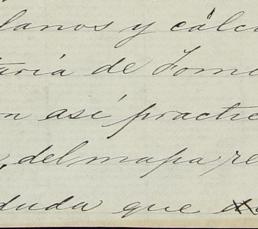 lanos y cálcu
taría de Fome
n así practic
, del mapa re
duda que